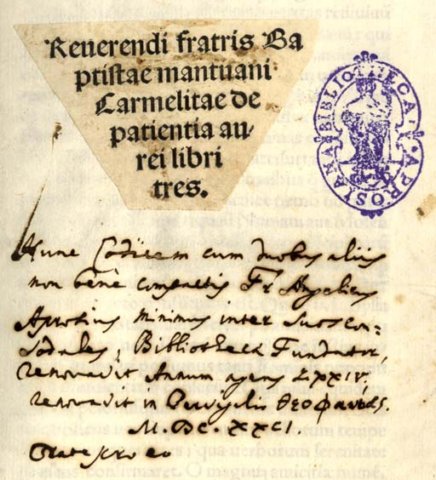 Reuerendi fratris Ba
ptistae mantuani
Carmelitae de
patientia au-
rei libri
tres.
BIBLIOTHECA APROSIANA
Hunc Codicem cum duobus aliis
non bene compactis Fr. Angelicus
Aprosius minimus inter Suos con-
Sodales, Bibliothecæ Fundator,
renovavit Annum agens LXXIV,
renovavit in Pervigilio
M. DC. XXCI.
Orate pro eo